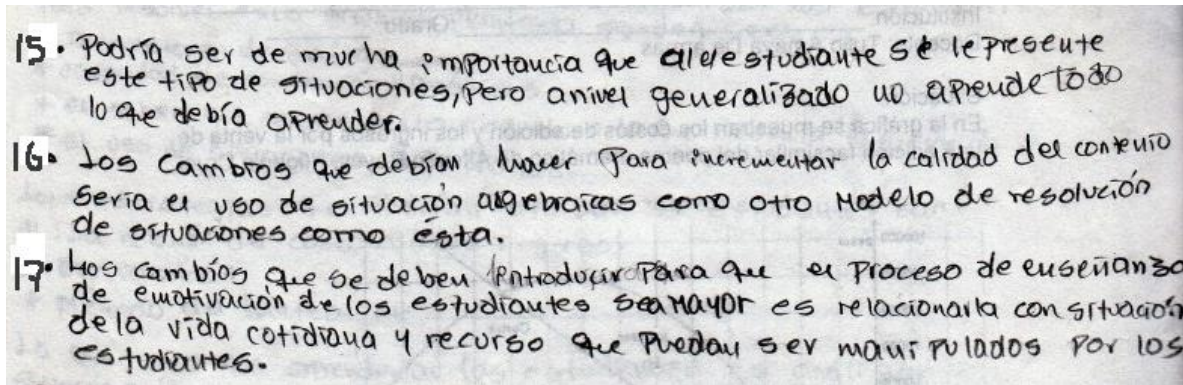 15. Podría ser de mucha importancia que al el estudiante se le presente
este tipo de situaciones, pero a nivel generalizado no aprende todo
lo que debía aprender.
16. Los cambios que debían hacer para incrementar la calidad del contenio
sería el uso de situación algebraicas como otro modelo de resolución
de situaciones como ésta.
17. Los cambios que se deben introducir para que el proceso de enseñanza
de emotivación de los estudiantes sea mayor es relacionarla con situación
de la vida cotidiana y recurso que puedan ser manipulados por los
estudiantes.